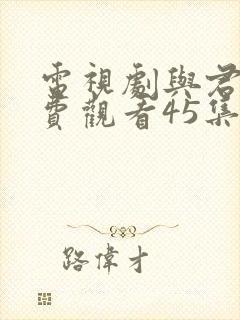 電視劇與君
費觀看45集
路偉才